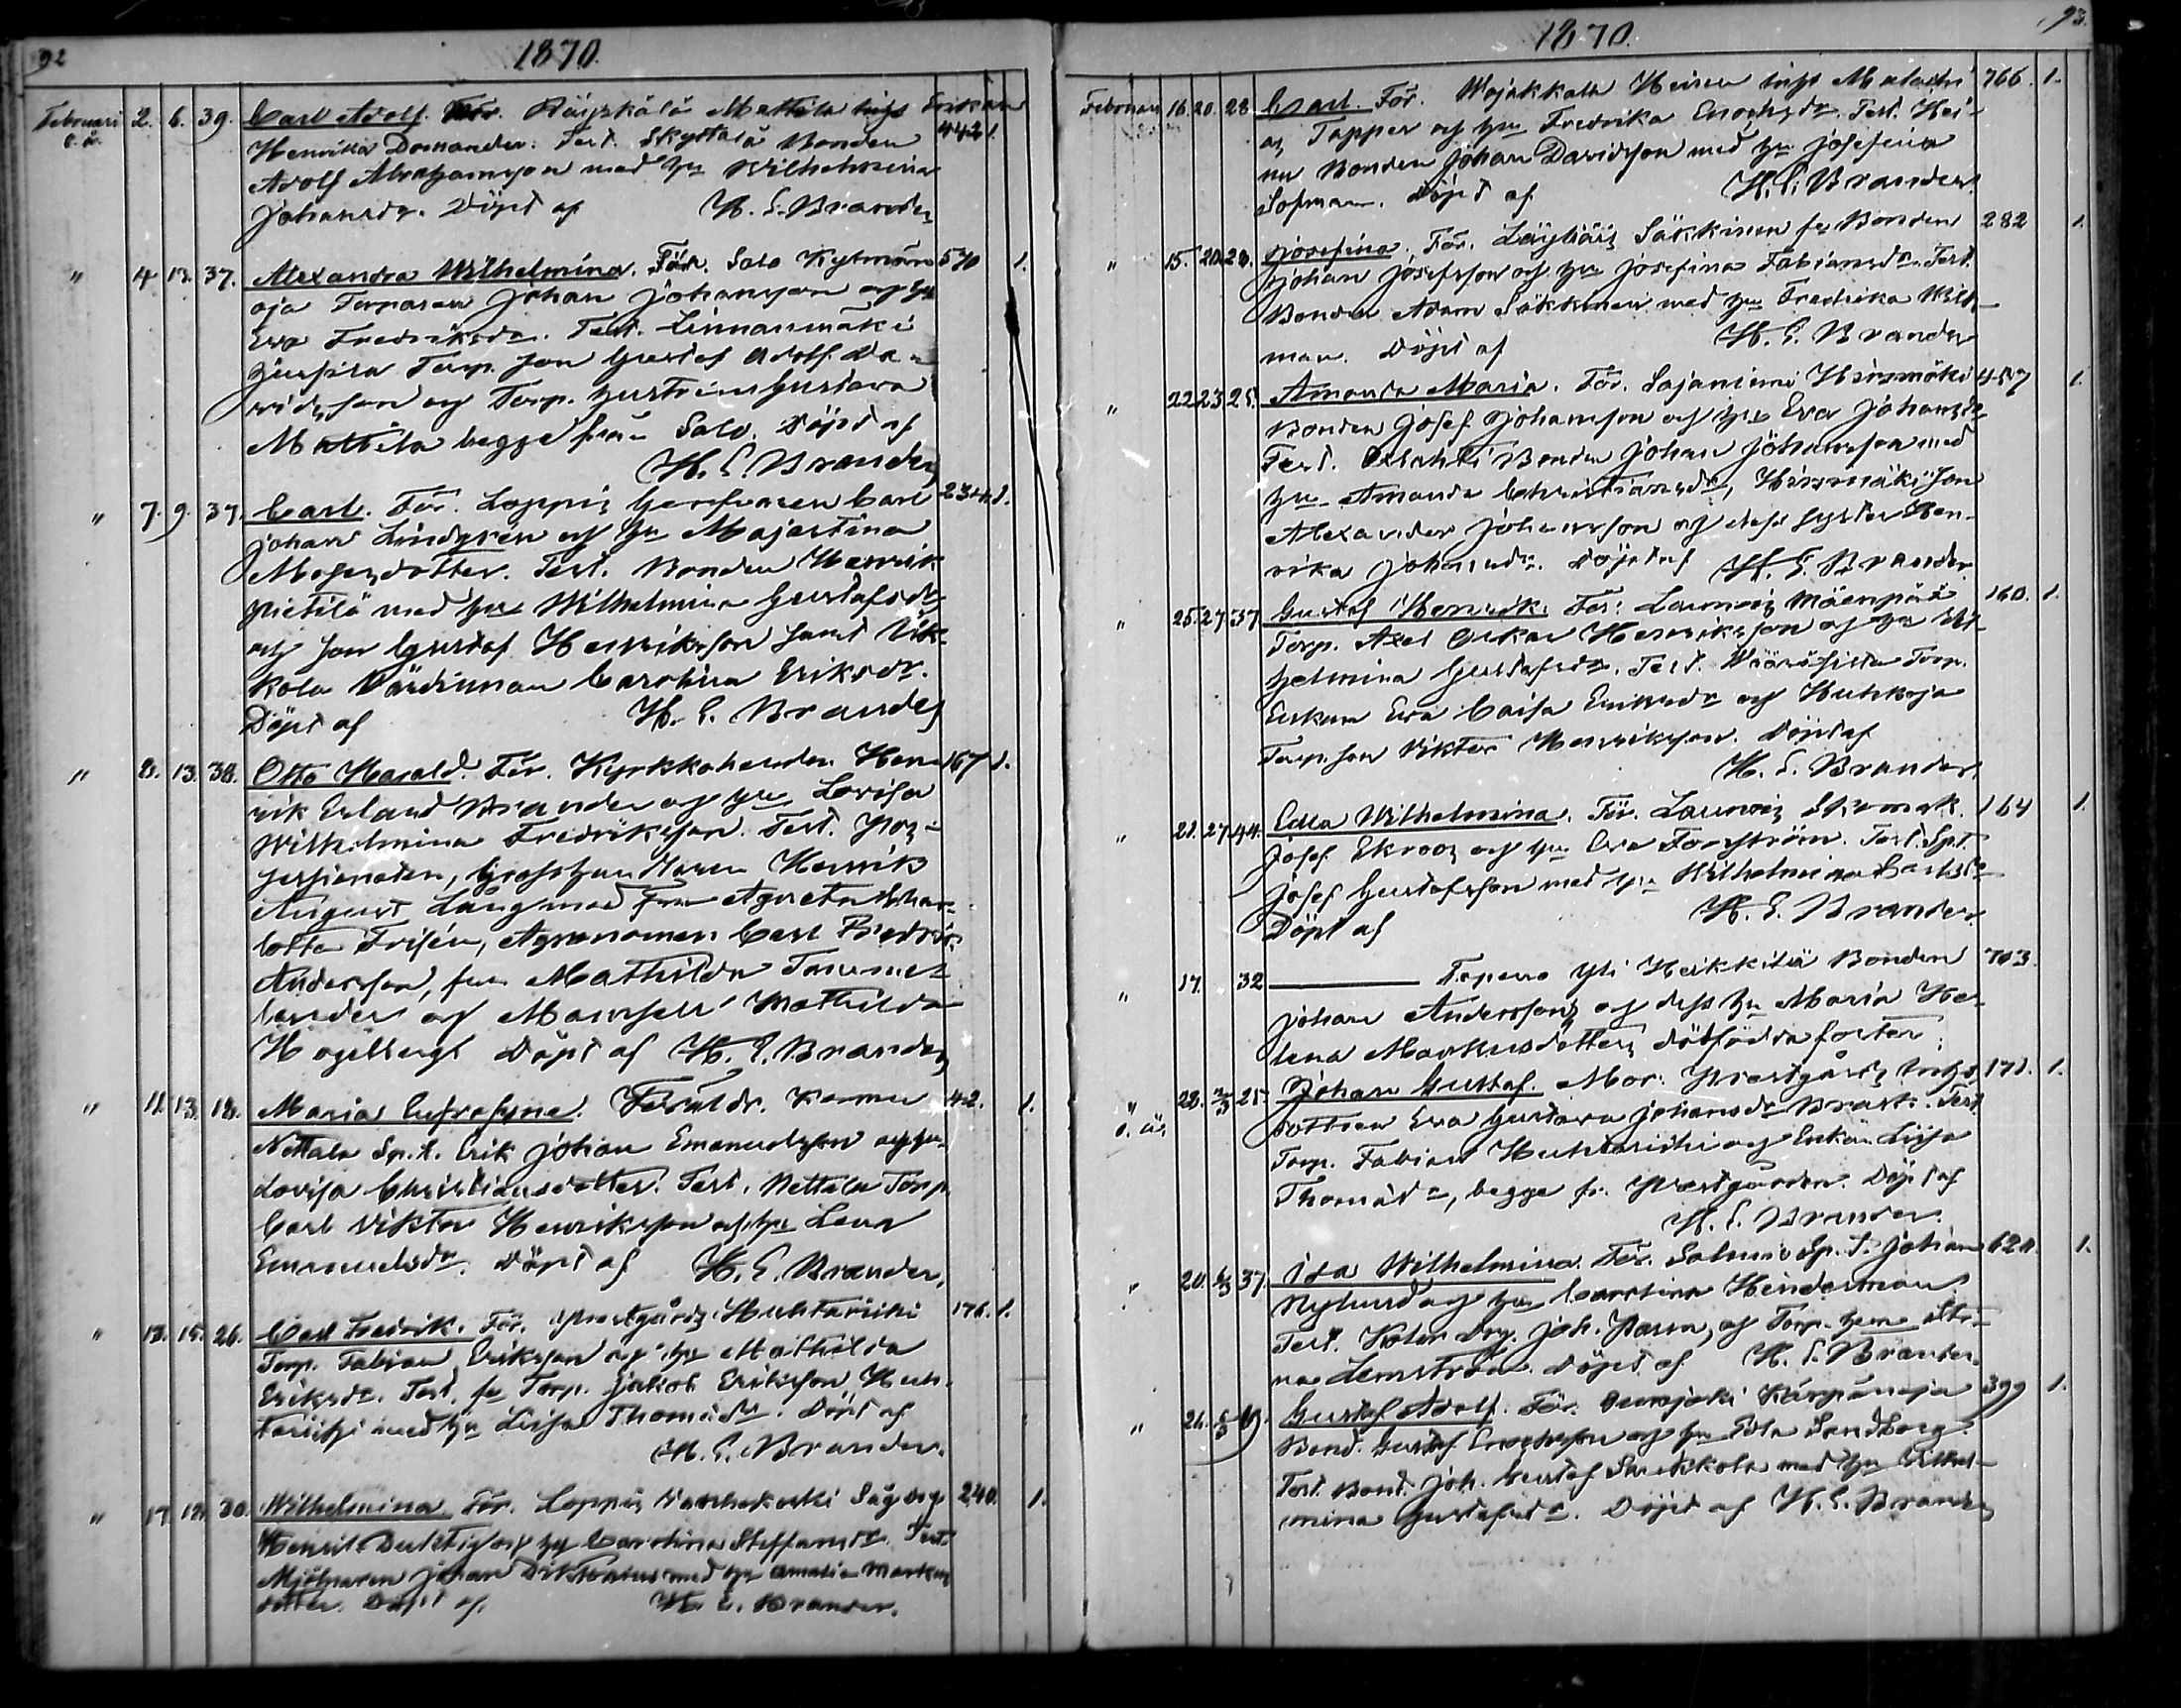 92
1870.
Februari 2. 6. 39. Carl Adolf. För. Räyskälä Mattila inhs Enkan
o. ä. Henrika Domander. Test. Skyttälä Bonden 442 1.
Adolf Abrahamsson med hu Wilhelmina
Johansdr. Döpt af H. E. Brander
" 4 13. 37. Alexandra Wilhelmina. För. Salo Kylmän 570 1.
oja Torparen Johan Johansson og hu
Eva Fredriksdr. Test. Linnanmäki
Torp. son Gustaf Adolf Da-
vidsson og Torp. hustrun Gustava
Mattila begge från Salo. Döpt af
H. E. Brander
" 7. 9. 37. Carl. För. Loppis Garfvaren Carl 234. 1.
Johan Lindgren og hu Majastina
Mosesdotter. Test. Bonden Henrik
Pietilä med hu Wilhelmina Gustafsdr
og son Gustaf Henriksson samt
kola Värdinnan Carolina Eriksdr.
Döpt af H. E. Brander
" 8. 13. 38. Otto Harald. För. Kyrkkoherden Hen- 167 1.
rik Erland Brander og hu Lovisa
Wilhelmina Fredriksson. Test. Pos-
sessionaten, Grosshandlaren Henrik
August Lång med fru Agneta Char-
lotta Frisén, Agronomen Carl Fredrik
Andersson, fru Mathilda Tamme-
lander og Mamsell Mathilda
Hagelberg. Döpt af H. E. Brander
" 11. 13. 18. Maria Eufrosyne. Föräldr. Kormu 42. 1.
Nettala Sp.t. Erik Johan Emanuelsson og hu
Lovisa Christiansdotter. Test. Nettala Torp.
Carl Viktor Henriksson og hu Lena
Emanuelsdr. Döpt af H. E. Brander.
" 13. 15. 26. Carl Fredrik. För. Prestgårds Huhtariihi 176. 1.
Torp. Fabian Eriksson og hu Mathilda
Eriksdr. Test. fr Torp. Jakob Eriksson Huh-
tariihi med hu Lisa Thomasdr. Döpt af
H. E. Brander.
" 17. 19. 30. Wilhelmina. För. Loppis Sågdrg. 240. 1.
Henrik Duktig og hu Carolina Steffansdr. Test.
Mjölnaren Johan med hu Amalia Markus
dotter. Döpt af H. E. Brander.
93.
1870.
Februari 16. 20. 28 Carl. För. Wojakkala Heinu inhs Malachi 766. 1.
as Tapper og hu Fredrika Enochsdr. Test. Hei-
nu Bonden Johan Davidsson med hu Josefina
Sofman. Döpt af H. E. Brander.
" 15. 20. 29. Josefina. För. Läyliäis Säkkinen fr Bonden 282 1.
Johan Josefsson og hu Josefina Fabiansdr. Test.
Bonden Adam Säkkinen med hu Fredrika Wild-
man. Döpt af H. E. Brander
" 22 23 25. Amanda Maria. För. Sajaniemi Hirsmäki 457 1.
Bonden Josef Johansson og hu Eva Johansdr
Test. Bonden Johan Johansson med
hu Amanda Christiansdr, Hirsmäki son
Alexander Johansson og dess syster Hen-
rika Johansdr. Döpt af H. E. Brander.
" 25. 27. 37 Gustaf Henrik. För: Launois Mäenpää 160. 1.
Torp. Axel Oskar Henriksson og hu Wil-
helmina Gustafsdr. Test. Torp.
Enkan Eva Caisa Eriksdr og Huhkoja
Torp. son Viktor Henriksson. Döpt af
H. E. Brander.
" 21. 27. 44. Edla Wilhelmina. För. Launois Skomak. 164 1.
Josef Ekroos og hu Eva Forsström. Test. Spt.
Josef Gustafsson med hu Wilhelmina
Döpt af H. E. Brander.
" 17. 32 ——— Topeno Yli Heikkilä Bonden 703.
Johan Anderssons og dess hu Maria He-
lena Markusdotters dödfödda foster.
" 28. 2/3 25 Johan Gustaf. Mor: Prestgårds inhs 171. 1.
o. ä. dottren Eva Gustava Johansdr Brask. Test.
Torp. Fabian Huhtariihi og Enkan Lisa
Thomasdr, begge fr. Prestgården. Döpt af
H. E. Brander.
" 20. 6/3 37. Ida Wilhelmina. För. Salmis Sp. t. Johan 620. 1.
Nylund og hu Carolina Hinderman.
Test. Drg. Joh. og Torp. hem
na Lemström. Döpt af H. E. Brander.
" 26. 6/3 19. Gustaf Adolf. För. Kärpänoja 399 1.
Bond. Gustaf Enochsson og hu Edla Sandberg.
Test. Bond. Joh. Gustaf med hu Wilhel-
mina Gustafsdr. Döpt af H. E. Brander